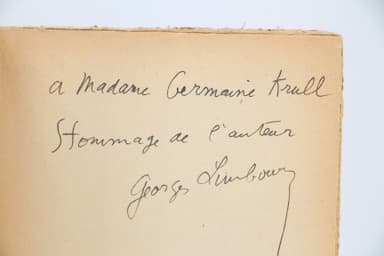 a Madame Germaine Krull
Hommage de l'auteur
Georges Limbour